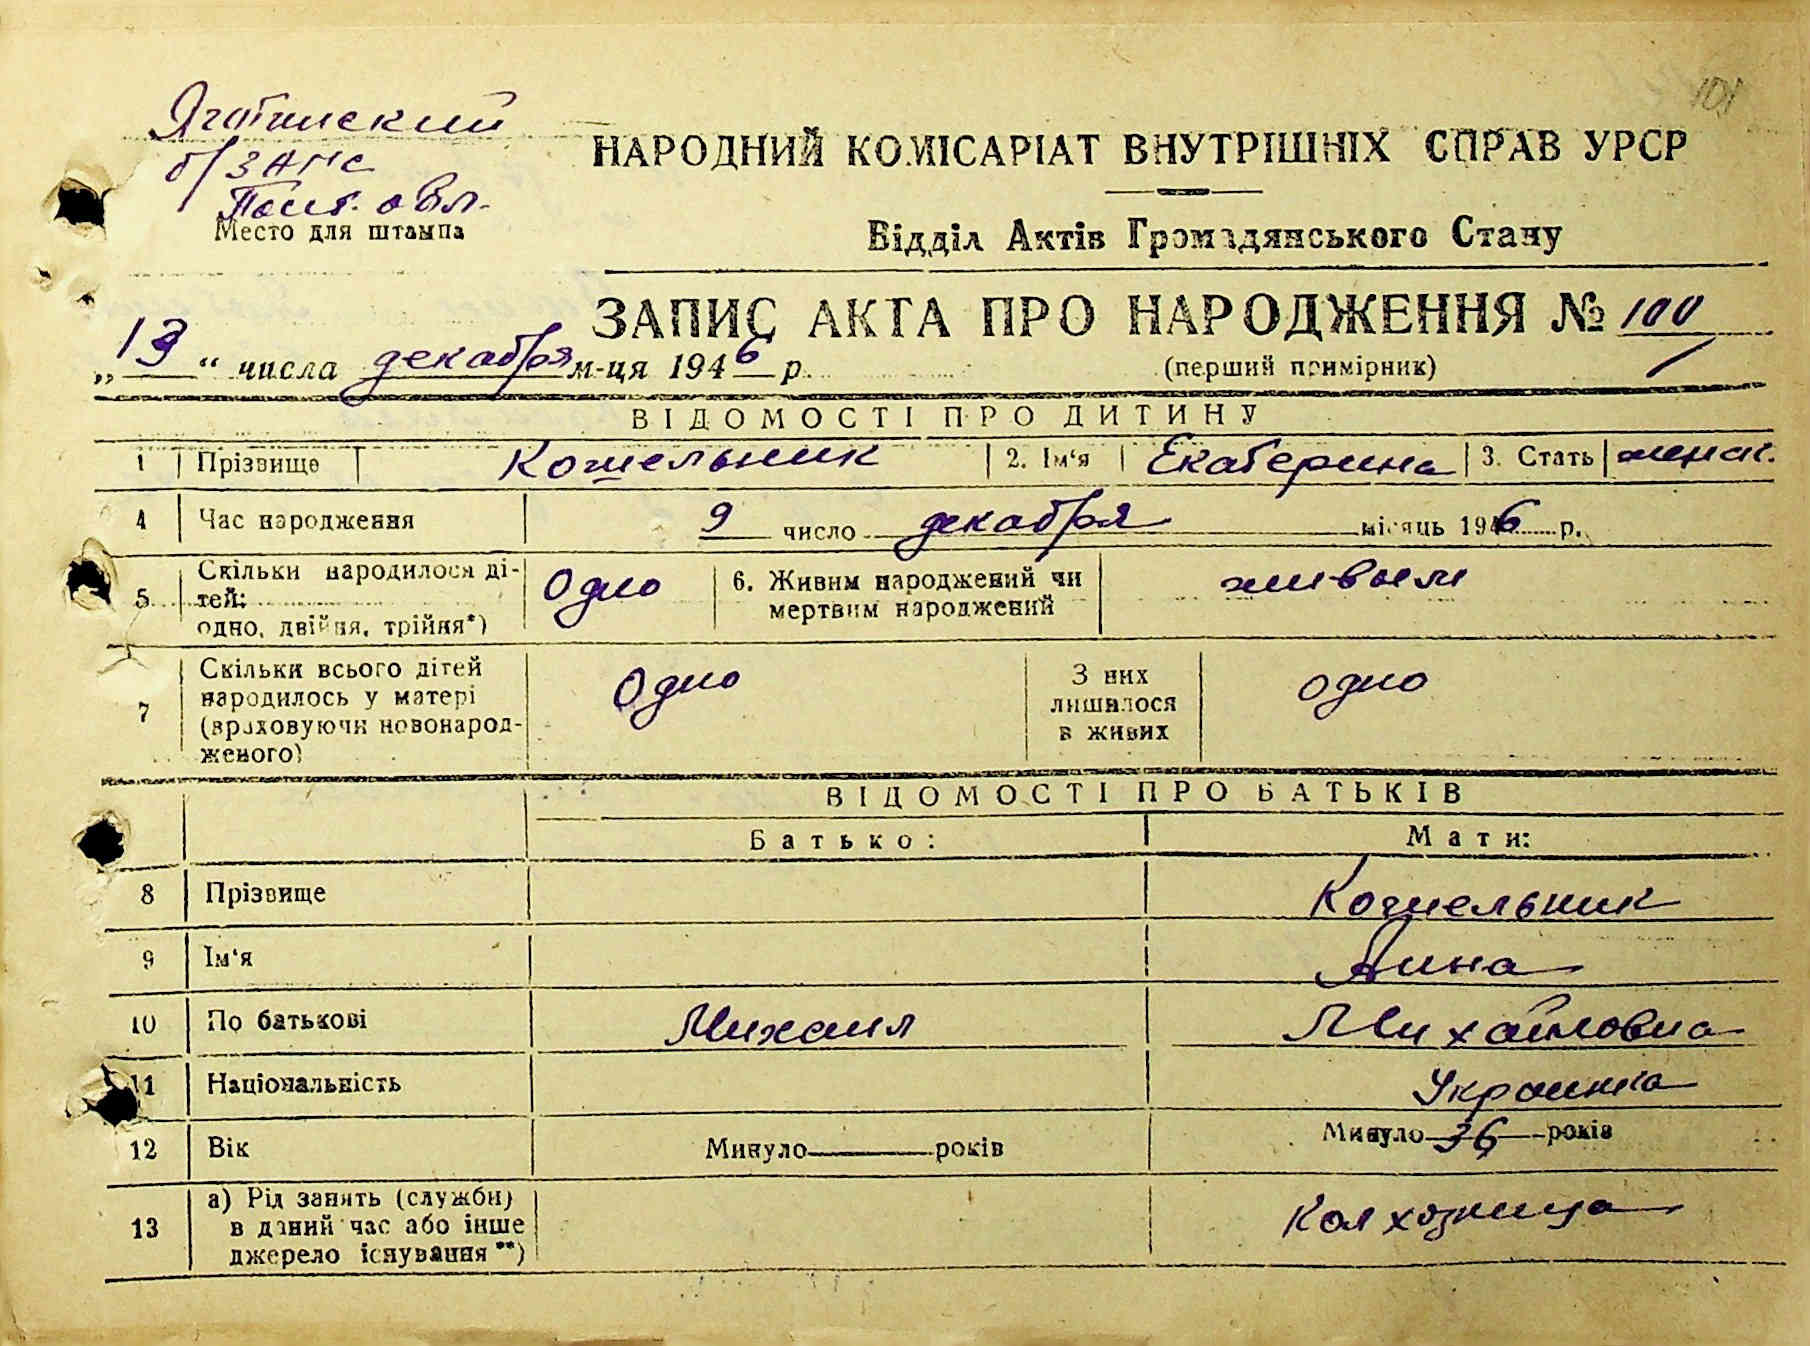 101
Яготинский
б/ЗАГС
Полт. обл.
Место для штампа
НАРОДНИЙ КОМІСАРІАТ ВНУТРІШНІХ СПРАВ УРСР
Відділ Актів Громадянського Стану
ЗАПИС АКТА ПРО НАРОДЖЕННЯ № 100
„13“ числа декабря м-ця 1946 р.
(перший примірник)
ВІДОМОСТІ ПРО ДИТИНУ
1 Прізвище Кошельник 2. Ім‘я Екатерина 3. Стать женск.
4 Час народження 9 число декабря місяць 1946 р.
5 Скільки народилося ді-
тей:
одно, двійня, трійня*) Одно 6. Живим народжений чи
мертвим народжений живым
7 Скільки всього дітей
народилось у матері
(враховуючи новонарод-
женого) Одно З них
лишилося
в живих одно
ВІДОМОСТІ ПРО БАТЬКІВ
Батько: Мати:
8 Прізвище Кошельник
9 Ім‘я Анна
10 По батькові Михаил Михайловна
11 Національність Украинка
12 Вік Минуло років Минуло 36 років
13 а) Рід занять (служби)
в даний час або інше
джерело існування**) Колхозница